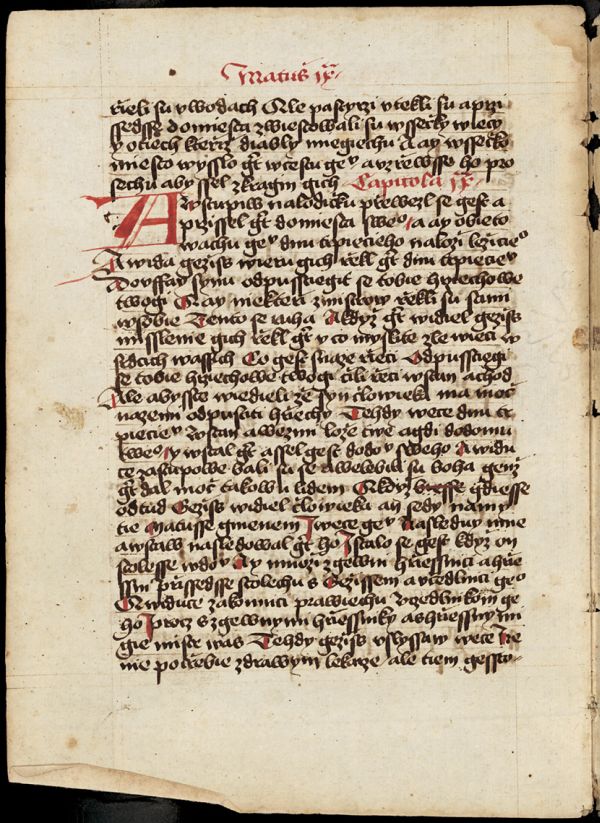 Matús ix
řieli su vwodach Ale pastyrzi vtekli su aprzi
ssedsse domiesta zwiestowali su wssečky wiecy
y otiech kteríz diably miegiechu A ay wssečko
miesto wysslo gt wcestu geͮ auzřewsse ho pro
sechu aby ssel zkragin gich Capitola ix
A wstupiw nalodicku přewezl se gest a
przissel gt domiesta sweͦ / a ay obieto
wachu geͮ dnu trpiecieho naloži ležicieͦ
A wida gezíss wieru gich řekl gt dnu trpiecieͮ
Dovffay synu odpusstiegit se tobie hrziechowe
twogi A ay niekteří zmistrow řekli su sami
wsobie Tento se ruha A když gt widiel gezíss
misslenie gich řekl gt y co myslite zle wieci w
srdcich wassich Co gest snaze řeci Odpusstiegi
se tobie hrziechowe twogi čili řeci wstan achod
Ale abysste wiedieli že syn člowieka ma moc
nazemi odpusstiti hřiechy Tehdy wece dnu tr
pieciеͮ Wstan awezmi lože twe agdi dodomu
tweͦ / y wstal gt assel gest dodoͮ sweho A widu
ce zastupowe bali su se awelebili su boha genž
gt dal moc takowu lidem A když gdiesse
odtud Gezíss widiel člowieka an sedy namy
tie Matusse gmenem I wece geͮ Nasleduy mne
awstaw nasledowal gt ho I stalo se gest kdyz on
stolesse wdoͮ Ay mnozi zgewni hřiessnici ahřie
ssni přissedsse stolechu s Gezissem avčedlnici geͦ
A widuce zakonnici prawiechu včedlnikom ge
ho Proč szgewnymi hřiessniky ashřiessnymi
gie mistr was Tehdy gezíss vslyssaw wece Ne
nie potřebie zdrawym lekarze ale tiem gessto